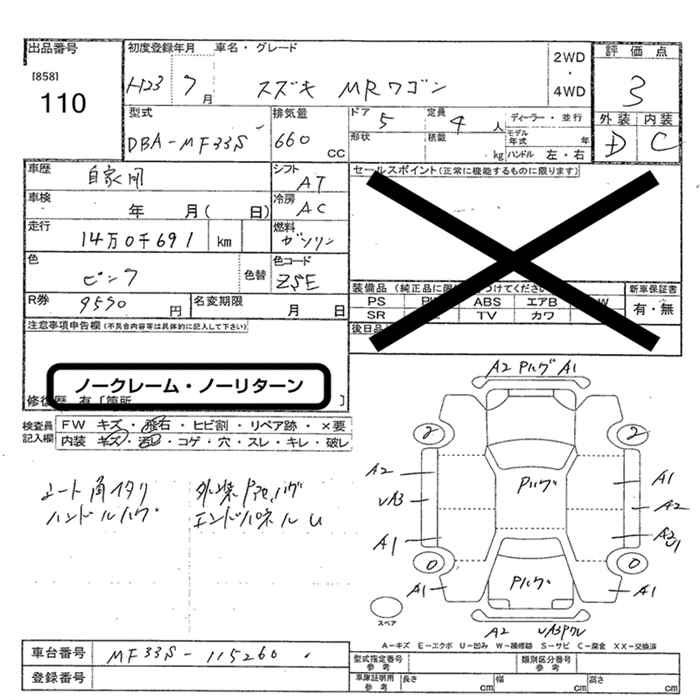 出品番号
[858]
110
初度登録年月 車名・グレード
H23 7月 スズキ MRワゴン
2WD
・
4WD
評価点
3
外装 内装
D C
型式
DBA-MF33S
排気量
660 cc
ドア 5
形状
定員 4 人
積載 kg
ディーラー・並行
モデル年式 年
ハンドル 左・右
車歴
自家用
シフト
AT
車検
年 月( 日)
冷房
AC
走行
14万0千691 km
燃料
ガソリン
色
ピンク
色替
色コード
ZSE
R券 9590 円
名変期限 月 日
セールスポイント(正常に機能するものに限ります)
装備品
新車保証書
有・無
PS ABS エアB
SR TV カワ
後日品
注意事項申告欄(不具合内容等は具体的に記入して下さい)
ノークレーム・ノーリターン
修復歴 有 [箇所 ]
検査員記入欄
FW キズ・飛石・ヒビ割・リペア跡・×要
内装 キズ・汚レ・コゲ・穴・スレ・キレ・破レ
シート角イタリ
ハンドルハゲ
エンドパネルU
A2 Pハゲ A1
2 2
A2 Pハゲ A1
A3 A2
A1 A2
U1
0 0
A1 Pハゲ A1
スペア
A2
A-キズ E-エクボ U-凹み W-補修跡 S-サビ C-腐食 XX-交換済
車台番号 MF33S-115260
登録番号
型式指定番号
参考
類別区分番号
参考
車庫証明用
参考
長さ cm 幅 cm 高さ cm